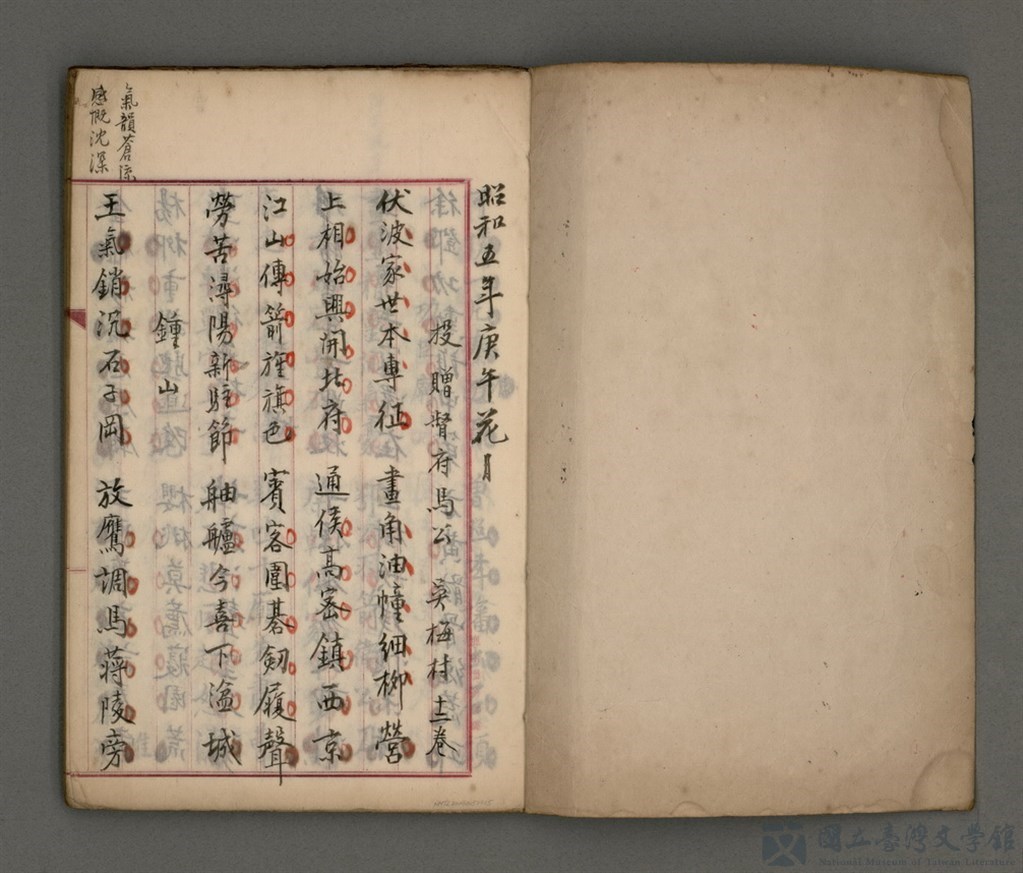 昭和五年庚午花月
投贈督府馬公 吳梅村 十二卷
伏波家世本專征 畫角油幢細柳營
上相始興開北府 通侯高密鎮西京
江山傳箭旌旗色 賓客圍碁劒履聲
勞苦潯陽新駐節 舳艫今喜下湓城
鍾山
王氣銷沉石子岡 放鷹調馬蔣陵旁
氣韻蒼凉
感慨沈深
國立臺灣文學館
National Museum of Taiwan Literature